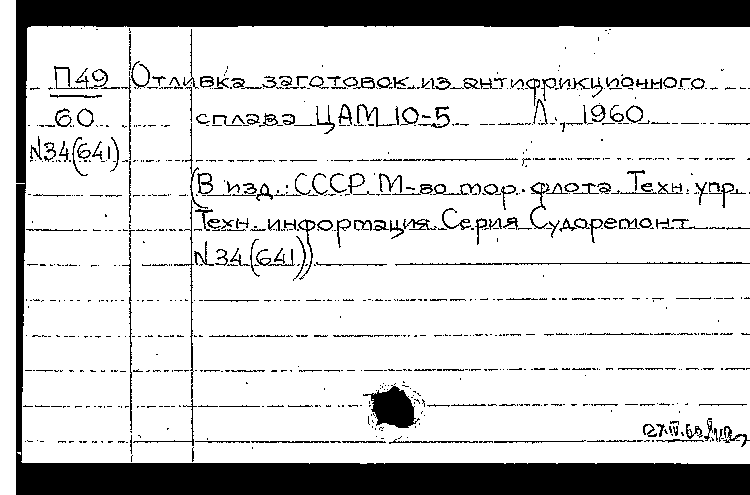 П49 Отливка заготовок из антифрикционного
60 сплава ЦАМ 10-5 Л., 1960
N34(641)
(В изд.: СССР. М-во мор. флота. Техн. упр.
Техн. информация. Серия Судоремонт
N34(641))
27.IV.60